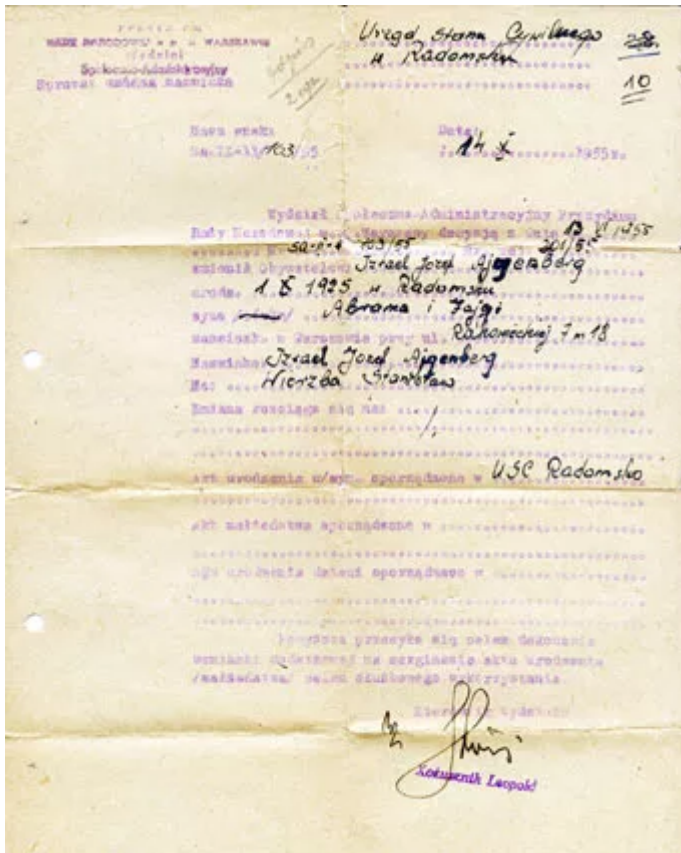 RADY NARODOWEJ m. st. WARSZAWY
Wydział
Społeczno-Administracyjny
Sprawa: zmiana nazwiska
Urząd Stanu Cywilnego
w Radomsku
10
Nasz znak:
103/55
Data:
14 X 1955r.
Wydział Społeczno-Administracyjny Prezydium
Rady Narodowej m.st. Warszawy decyzją z dnia
SA-II-4 103/55 201/55
zmienił Obywatelowi Izrael Józef Ajgenberg
urodz. 1 X 1925 w Radomsku
syna Abrama i Fajgi
zamieszk. w Warszawie przy ul. Rakowieckiej 7 m 18
Nazwisko Izrael Józef Ajgenberg
Na: Wierzba Stanisław
Zmiana rozciąga się na:
akt urodzenia w/wym. sporządzono w USC Radomsko
akt małżeństwa sporządzono w
akt urodzenia dzieci sporządzono w
Powyższe przesyła się celem dokonania
wzmianki dodatkowej na marginesie aktu urodzenia
/małżeństwa/ celem służbowego wykorzystania.
Kierownik Wydziału
Leopold